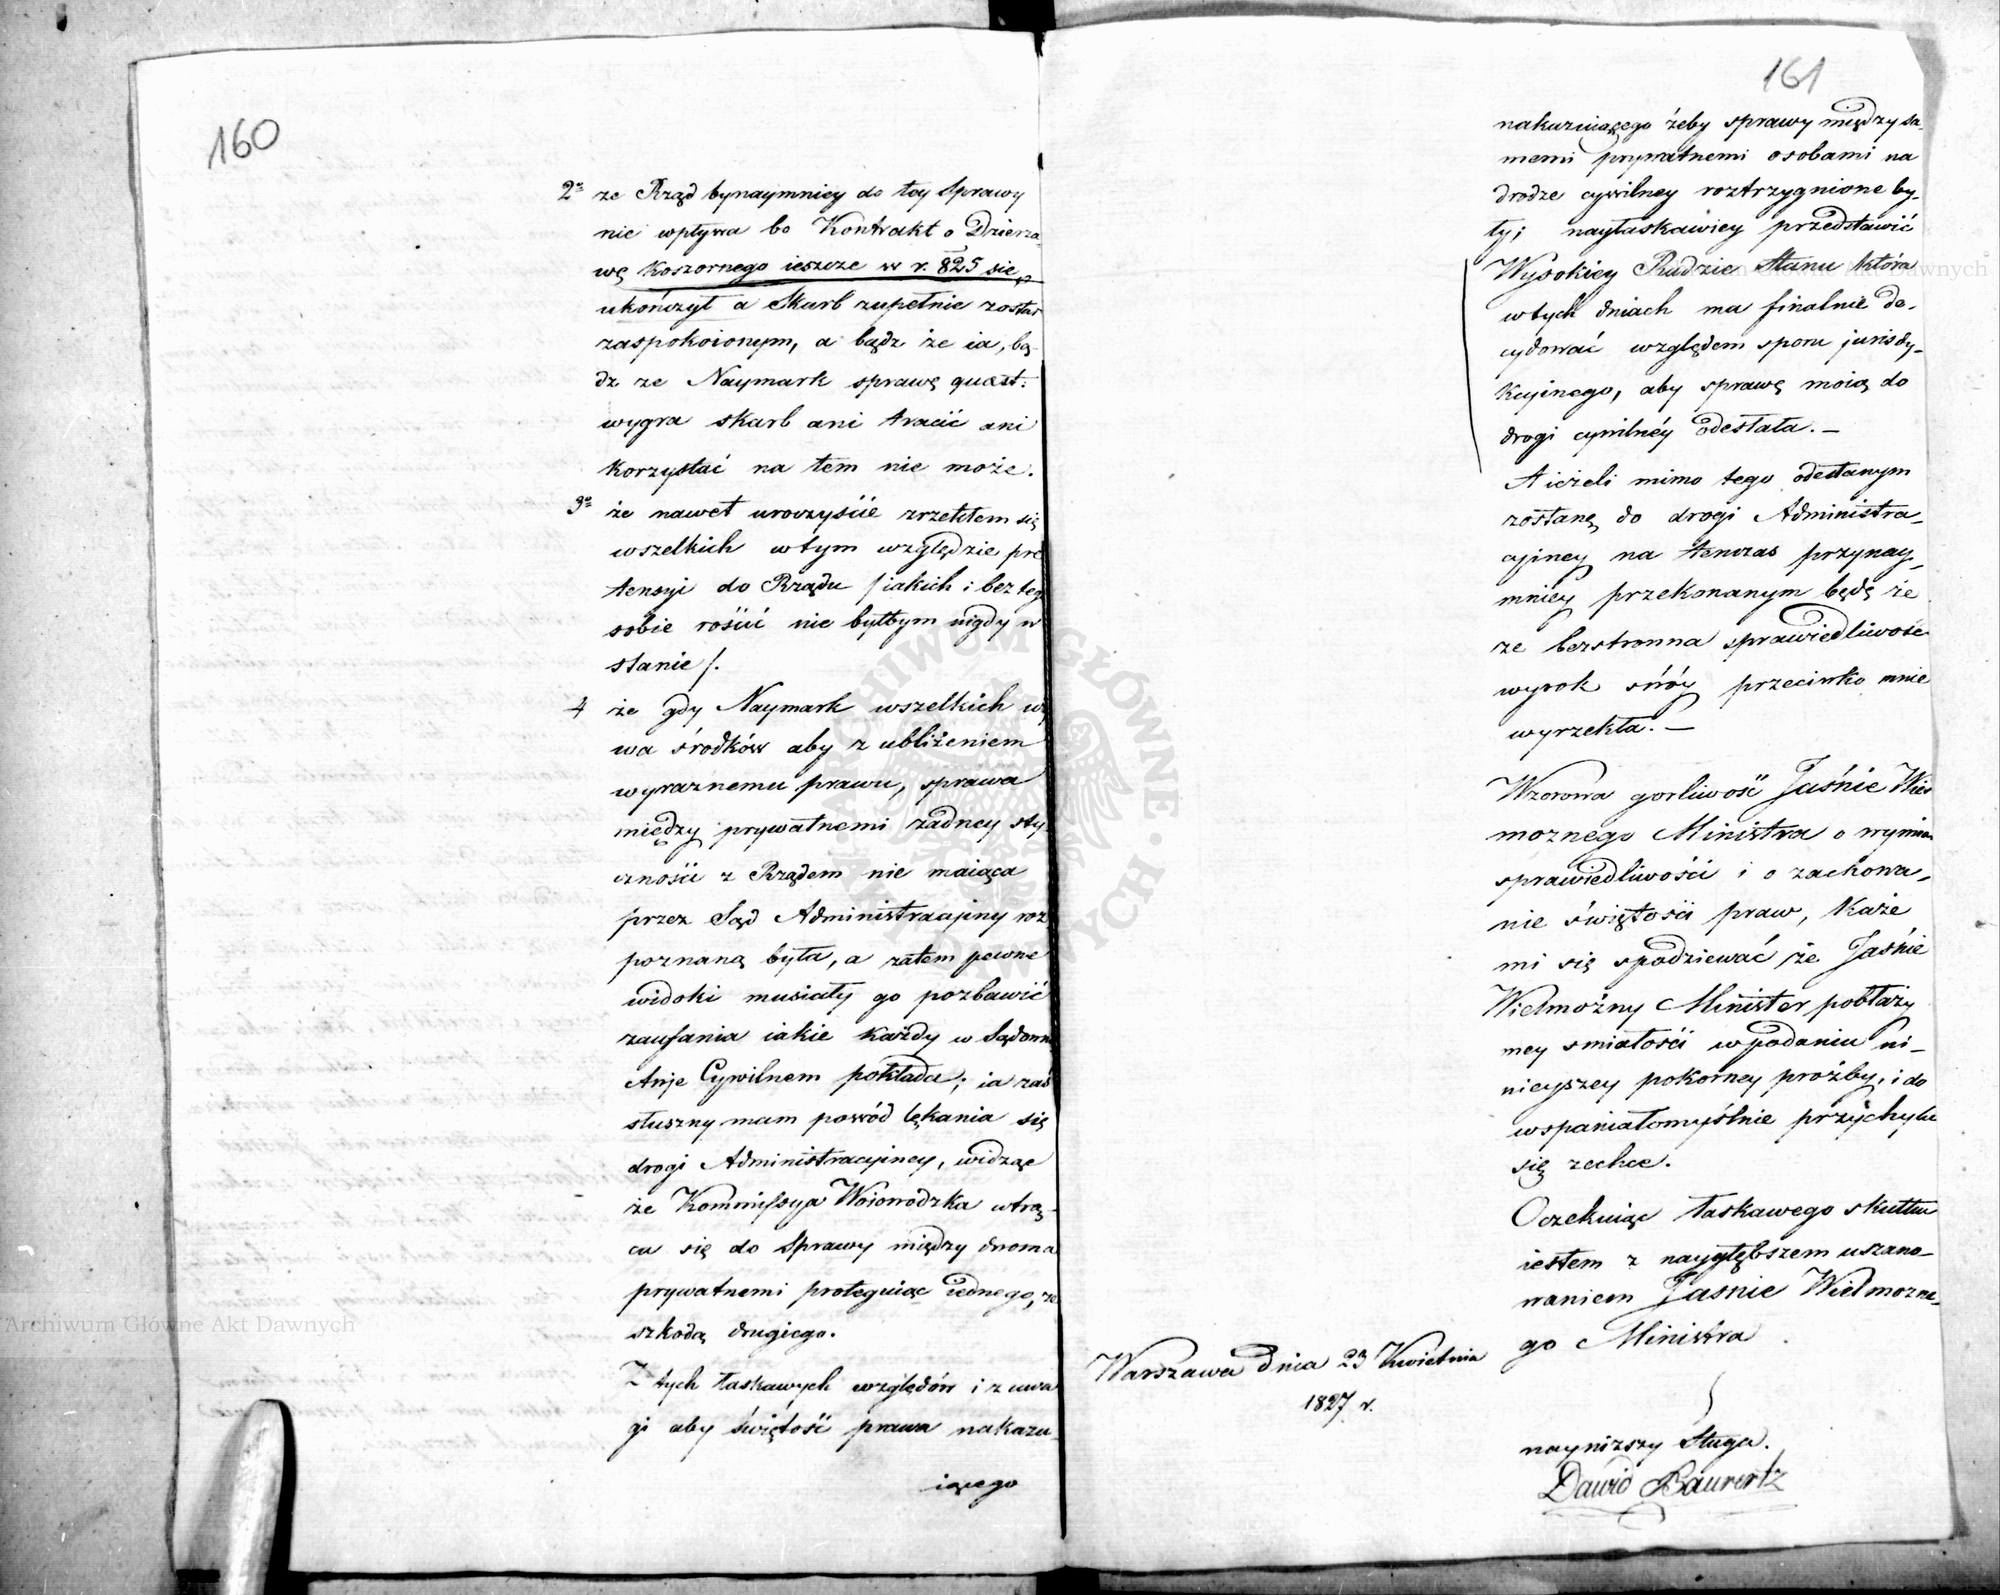 160
2º ze Rząd bynaymniey do tey Sprawy
nie wpływa bo Kontrakt o Dzierza-
wę Koszernego ieszcze w r. 825 się
ukończył a Skarb zupełnie został
zaspokoionym, a bądz że ia, bą-
dz ze Naymark sprawę quaest:
wygra skarb ani tracić ani
korzystać na tem nie może.
3º że nawet uroczyście zrzekłem się
wszelkich w tym względzie pre
tensyi do Rządu /iakich i bez teg
sobie rościć nie byłbym nigdy w
stanie/.
4 że gdy Naymark wszelkich uż
wa środków aby z ubliżeniem
wyraznemu prawu, sprawa
między prywatnemi żadney sty
czności z Rządem nie maiąca
przez Sąd Administracyiny roz
poznaną była, a zatem pewne
widoki musiały go pozbawić
zaufania iakie każdy w Sądown
ctwie Cywilnem pokłada; ia zaś
słuszny mam powód lękania się
drogi Administracyiney, widząc
że Kommissya Woiewodzka wtrą-
ca się do Sprawy między dwoma
prywatnemi proteguiąc iednego, ze
szkodą drugiego.
Z tych łaskawych względów i z uwa
gi aby świętość prawa nakazu-
iącego
161
nakazuiącego żeby sprawy między sa-
memi prywatnemi osobami na
drodze cywilney roztrzygnione by-
ły; nayłaskawiey przedstawić
Wysokiey Radzie Stanu która
w tych dniach ma finalnie de-
cydować względem sporu jurisdy-
kcyinego, aby sprawę moią do
drogi cywilnéy odesłała. —
A ieżeli mimo tego odesłanym
zostanę do drogi Administra-
cyiney na tenczas przynay-
mniey przekonanym będę że
ze bezstronna sprawiedliwość
wyrok swóy przeciwko mnie
wyrzekła. —
Wzorowa gorliwość Jaśnie Wiel
moznego Ministra o wymiar
sprawiedliwości i o zachowa-
nie świętości praw, każe
mi się spodziewać że Jaśnie
Wielmożny Minister pobłaży
mey smiałości w podaniu ni-
nieyszey pokorney prożby, i do
wspaniałomyślnie przychylić
się zechce.
Oczekuiąc łaskawego skutku
iestem z naygłębszem uszano-
waniem Jasnie Wielmozne-
go Ministra
Warszawa dnia 23 Kwietnia
1827 r.
naynizszy Sługa.
Dawid Baurertz
Archiwum Główne Akt Dawnych